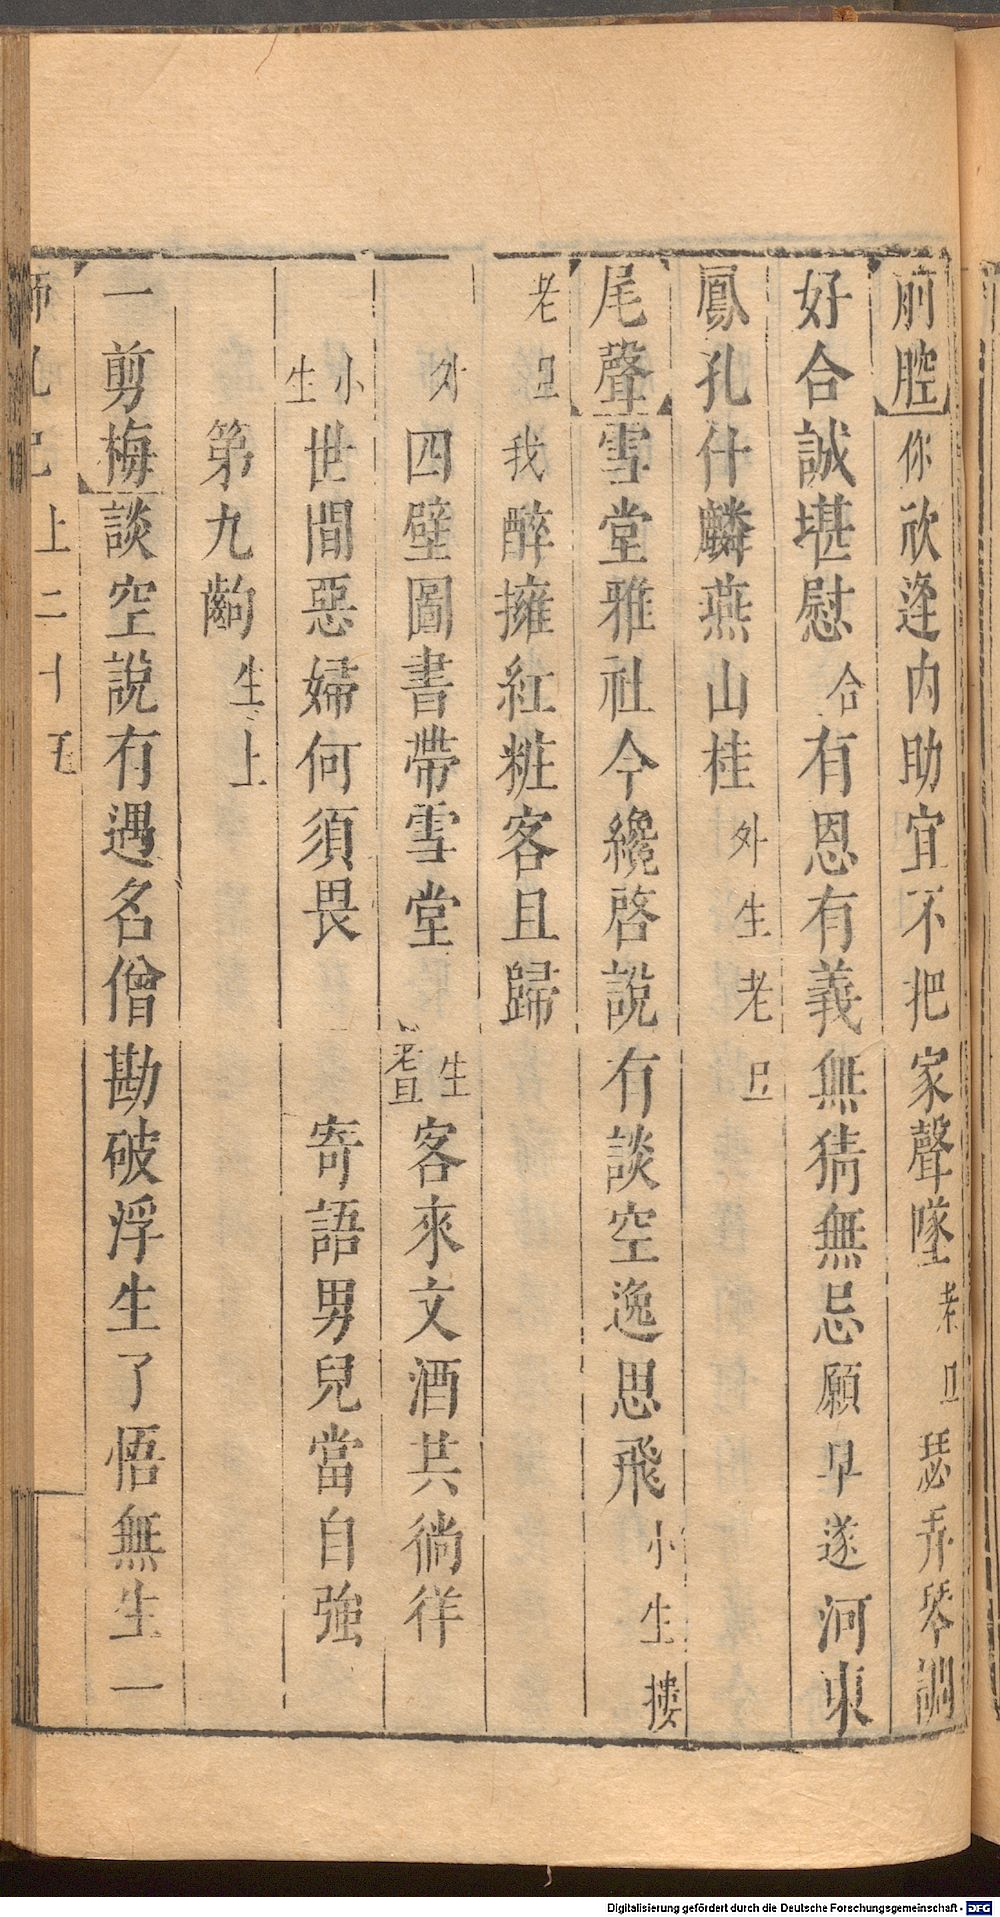 前腔你欣逢内助宜不把家聲墜老旦瑟弄琴調
好合誠堪慰合有恩有義無猜無忌願早遂河東
鳳孔什麟燕山桂外生老旦
尾聲雪堂雅社今纔啓說有談空逸思飛小生摟
老旦我醉擁紅粧客且歸
外四壁圖書帶雪堂生老旦客來文酒共徜徉
小生世間惡婦何須畏寄語男兒當自強
第九齣生上
一剪梅談空說有遇名僧勘破浮生了悟無生一
上二十五
Digitalisierung gefördert durch die Deutsche Forschungsgemeinschaft - DFG